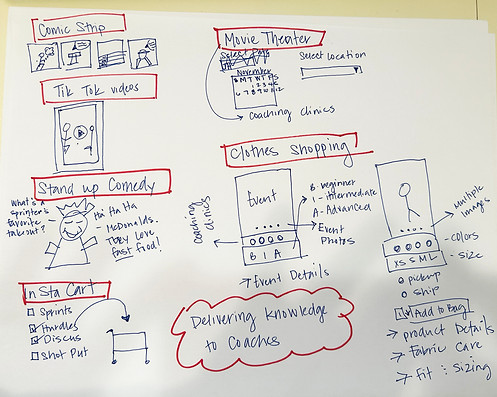 Comic Strip
Tik Tok videos
Stand up Comedy
What's a
sprinter's
favorite
takeout?
Ha Ha Ha
- McDonalds.
They love
fast food!
InSta Cart
Sprints
Hurdles
Discus
Shot Put
Movie Theater
Select Date
Select Location
November
S M T W T F S
1 2 3 4 5
6 7 8 9 10 11 12
coaching clinics
Clothes Shopping
coaching
clinics
Event
B I A
B - beginner
I - Intermediate
A - Advanced
Event
Photos
Event Details
Multiple
Images
- colors
XS S M L
- size
pickup
ship
Add to Bag
product Details
Fabric Care
Fit : Sizing
Delivering Knowledge
to Coaches